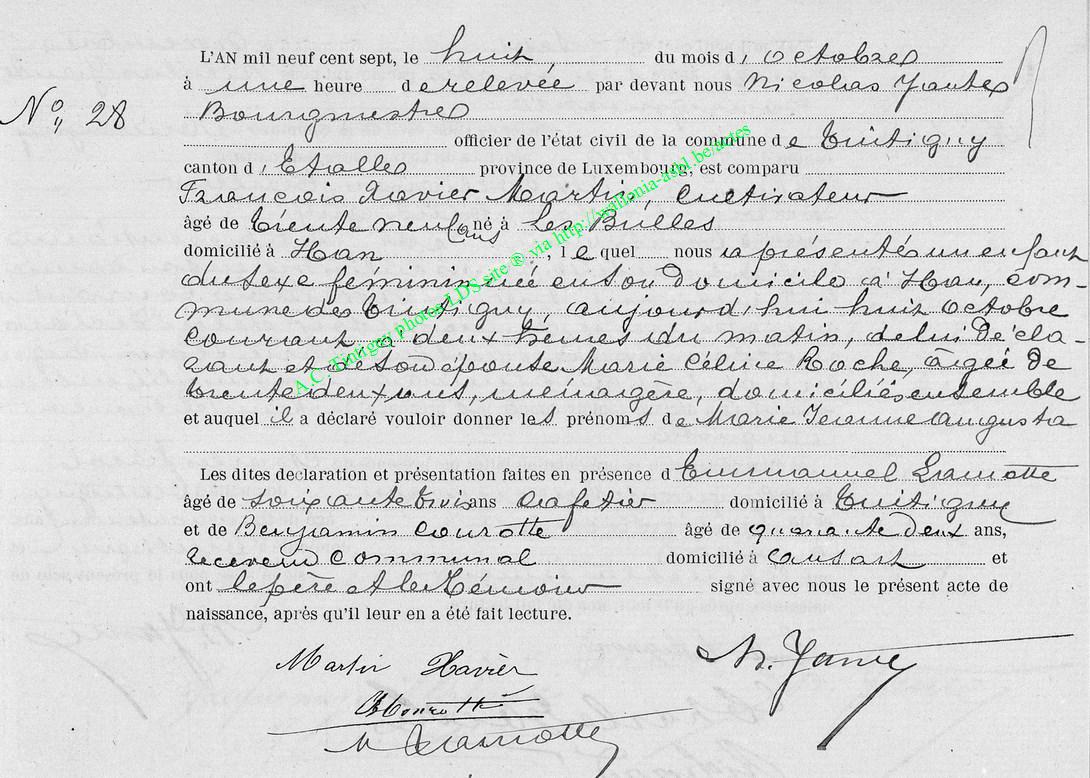 L'AN mil neuf cent sept, le huit du mois d'octobre
No 28
à une heure de relevée par devant nous Nicolas
Bourgmestre
officier de l'état civil de la commune de Tintigny
canton d'Etalle province de Luxembourg, est comparu
François Xavier Martin, cultivateur
âgé de trente neuf ans né à Les Bulles
domicilié à Han, lequel nous a présenté un enfant
du sexe féminin née en son domicile à Han, com-
mune de Tintigny, aujourd'hui huit octobre
courant à deux heures du matin, de lui Décla-
rant et de son épouse Marie Céline Roche, âgée de
trente deux ans, ménagère, domiciliés ensemble
et auquel il a déclaré vouloir donner les prénoms de Marie Jeanne Augusta
Les dites declaration et présentation faites en présence d'Emmanuel Lamotte
âgé de soixante trois ans cafetier domicilié à Tintigny
et de Benjamin Courotte âgé de quarante deux ans,
receveur communal domicilié à Ansart et
ont le père et les témoins signé avec nous le présent acte de
naissance, après qu'il leur en a été fait lecture.
Martin Xavier
N.
Lamotte
A.C. Tintigny photos LDS site ® via http://wallonia-asbl.be/actes